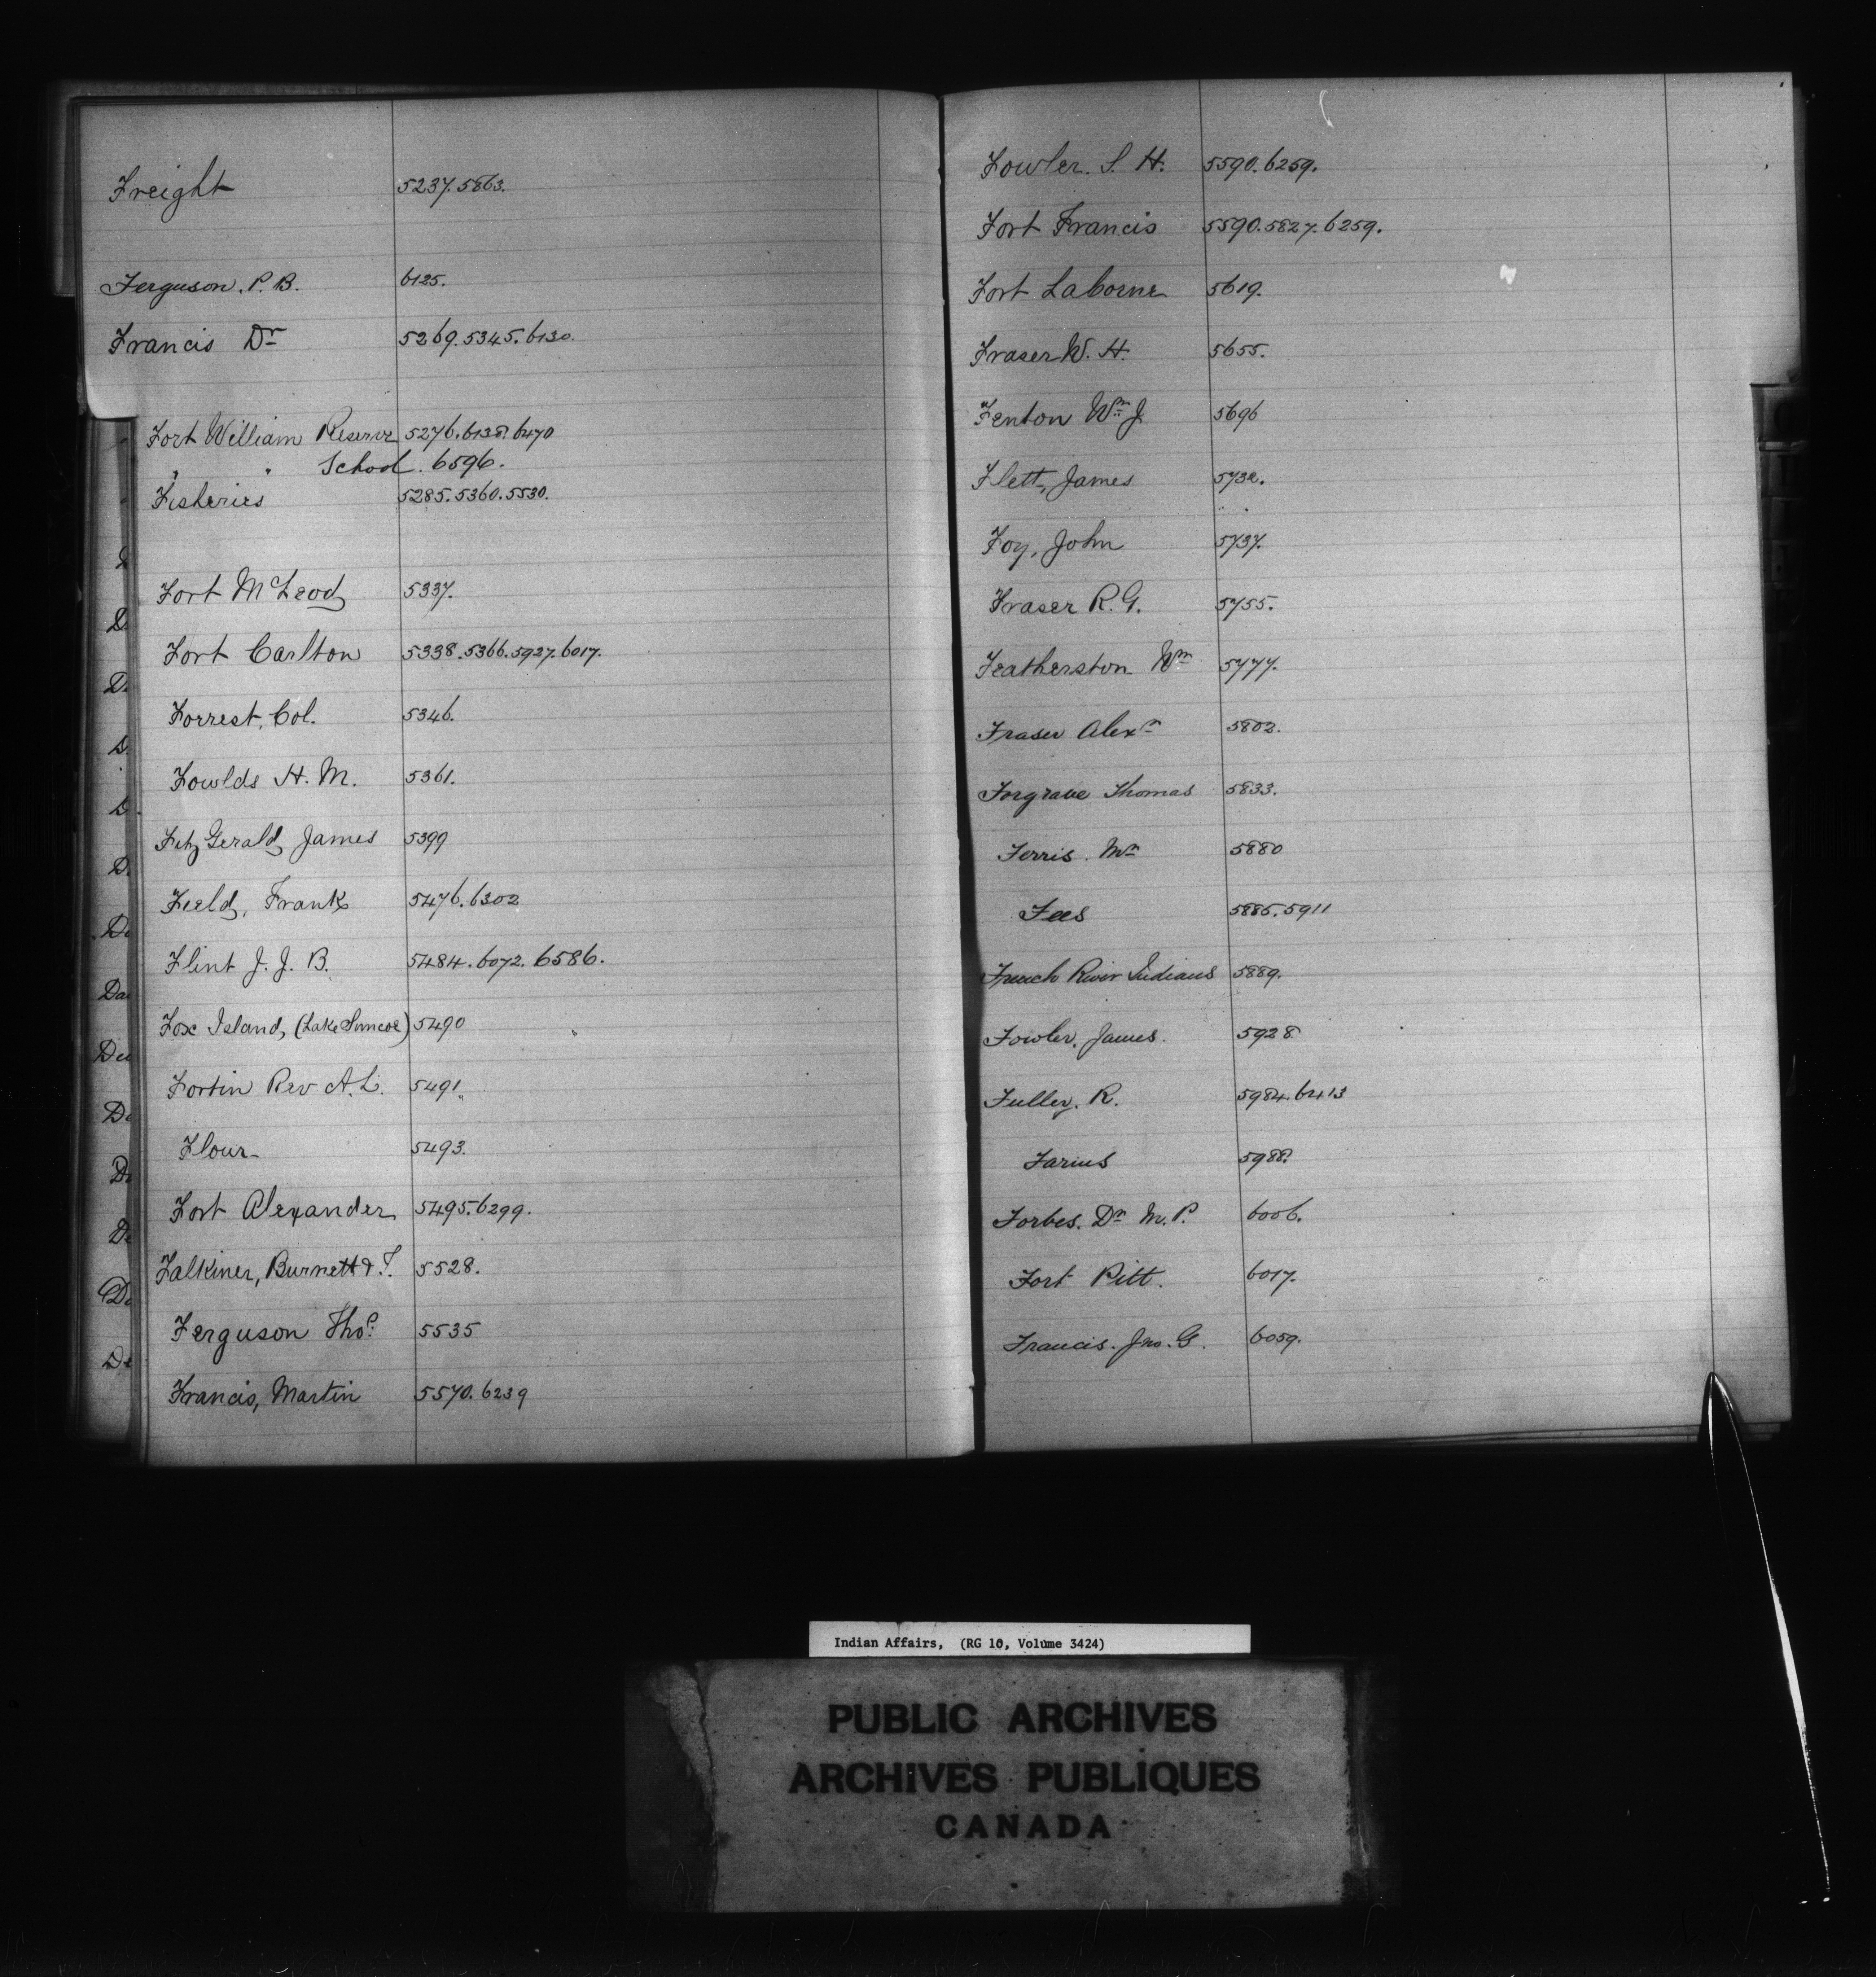 Freight 5237.5863.
Ferguson. P. B. 6125.
Francis Dr 5269.5345.6130.
Fort William Reserve 5276.6138.6470
" " School. 6596.
Fisheries 5285.5360.5530.
Fort McLeod, 5337.
Fort Carlton 5338.5366.5927.6017.
Forrest, Col. 5346.
Fowlds H. M. 5361.
FitzGerald, James 5399
Field, Frank 5476.6302
Flint J. J. B. 5484.6072.6586.
Fox Island, (Lake Simcoe) 5490
Fortin Rev A. L. 5491.
Flour 5493.
Fort Alexander 5495.6299.
Falkiner, Burnett & F. 5528.
Ferguson Thos. 5535
Francis, Martin 5570.6239
Fowler. S. H. 5590.6259.
Fort Francis 5590.5827.6259.
Fort Lacorne 5619.
Fraser W. H. 5655.
Fenton Wm J. 5696
Flett, James 5732.
Foy, John 5737.
Fraser R. G. 5755.
Featherston Wm 5777.
Fraser Alexr 5802.
Forgrave Thomas 5833.
Ferris. Mr 5880
Fees 5885.5911
French River Indians 5889.
Fowler. James. 5928
Fuller. R. 5984.6413
Farius 5988.
Forbes. Dr M. P. 6006.
Fort Pitt. 6017.
Francis. Jno. G. 6059.
D.
D.
D.
D.
Da
Den
De
De
De
De
Indian Affairs, (RG 10, Volume 3424)
PUBLIC ARCHIVES
ARCHIVES PUBLIQUES
CANADA